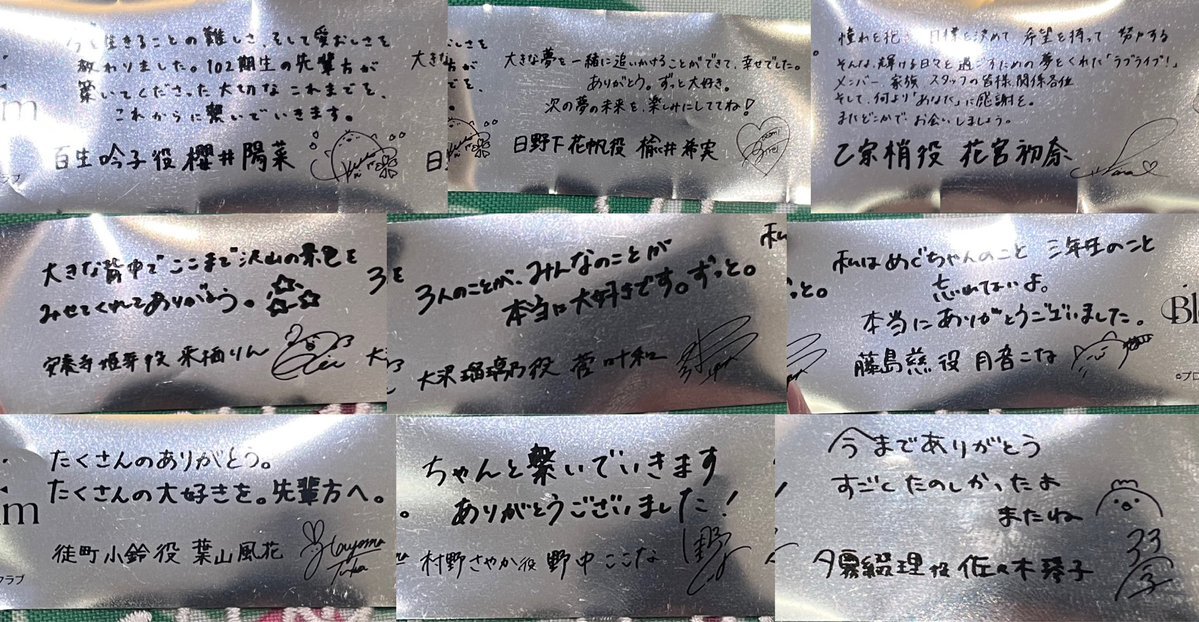 今を生きることの難しさ、そして愛おしさを
教わりました。102期生の先輩方が
築いてくださった大切なこれまでを、
これからに繋いでいきます。
百生吟子役 櫻井陽菜
大きな夢を一緒に追いかけることができて、幸せでした。
ありがとう。ずっと大好き。
次の夢の未来を、楽しみにしててね!
日野下花帆役 楡井希実
憧れを抱き 目標を決めて 希望を持って 努力する
そんな、輝ける日々を過ごすための夢をくれた「ラブライブ!」
メンバー 家族 スタッフの皆様 関係各位
そして、何より「あなた」に感謝を。
またどこかでお会いしましょう。
乙宗梢役 花宮初奈
大きな背中でここまで沢山の景色を
みせてくれてありがとう。
安養寺姫芽役 来栖りん
3人のことが、みんなのことが
本当に大好きです。ずっと。
大沢瑠璃乃役 菅叶和
私はめぐちゃんのこと 三年生のこと
忘れないよ。
本当にありがとうございました。
藤島慈役 月音こな
たくさんのありがとう。
たくさんの大好きを。先輩方へ。
徒町小鈴役 葉山風花
ちゃんと繋いでいきます
ありがとうございました!
村野さやか役 野中ここな
今までありがとう
すごくたのしかったよ
またね
夕霧綴理役 佐々木琴子